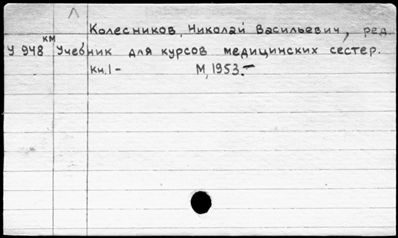 Колесников, Николай Васильевич, ред.
км
У 948 Учебник для курсов медицинских сестер.
Кн.1- М, 1953.-